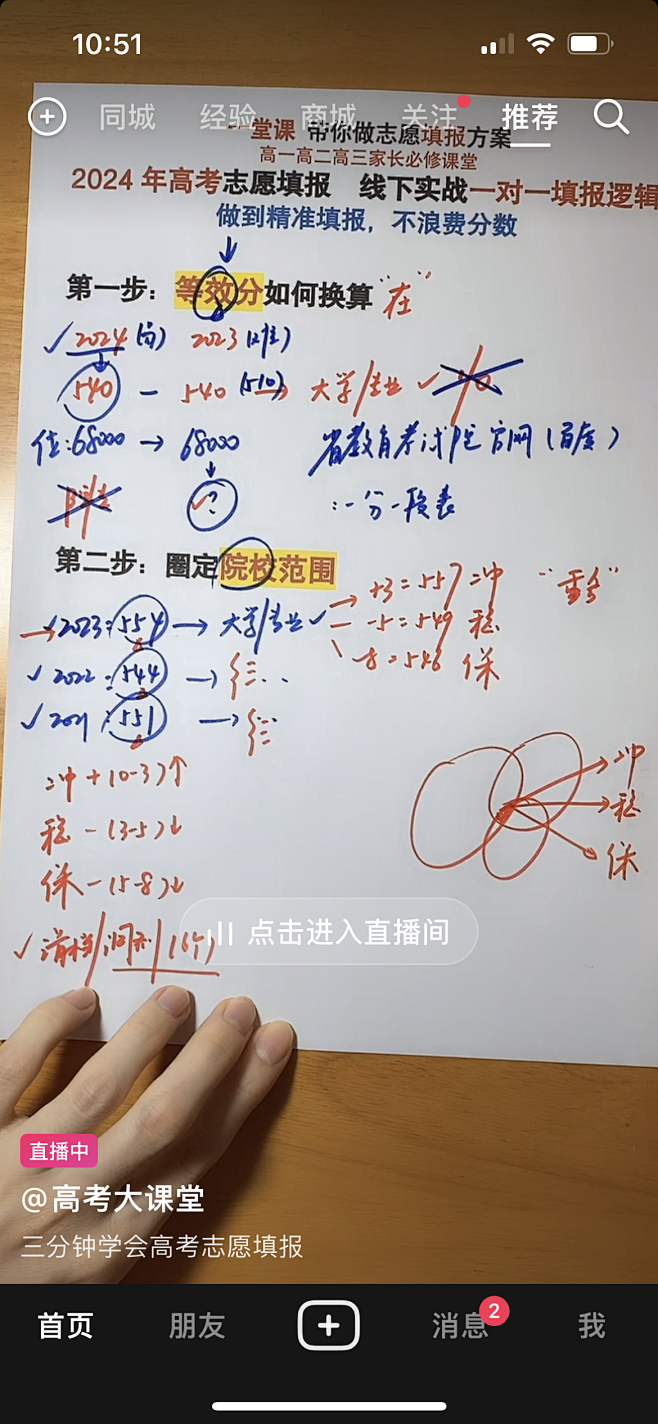 10:51
同城 经验 商城 关注 推荐
一堂课 带你做志愿填报方案
高一高二高三家长必修课堂
2024年高考志愿填报 线下实战一对一填报逻辑
做到精准填报，不浪费分数
第一步：等效分如何换算 "在"
2024 2023
540 - 540 (510) 大学/专业
位:68000 → 68000 省教育考试院官网(百度)
?
:一分一段表
第二步：圈定院校范围
+3=557 冲
2023:554 → 大学/专业 -5=549 稳
-8=546 保
2022:544 →
2021:551 →
冲+(0-3)↑
冲
稳-(3-5)↓
稳
保-(5-8)↓
保
点击进入直播间
直播中
@高考大课堂
三分钟学会高考志愿填报
首页 朋友 消息 2 我